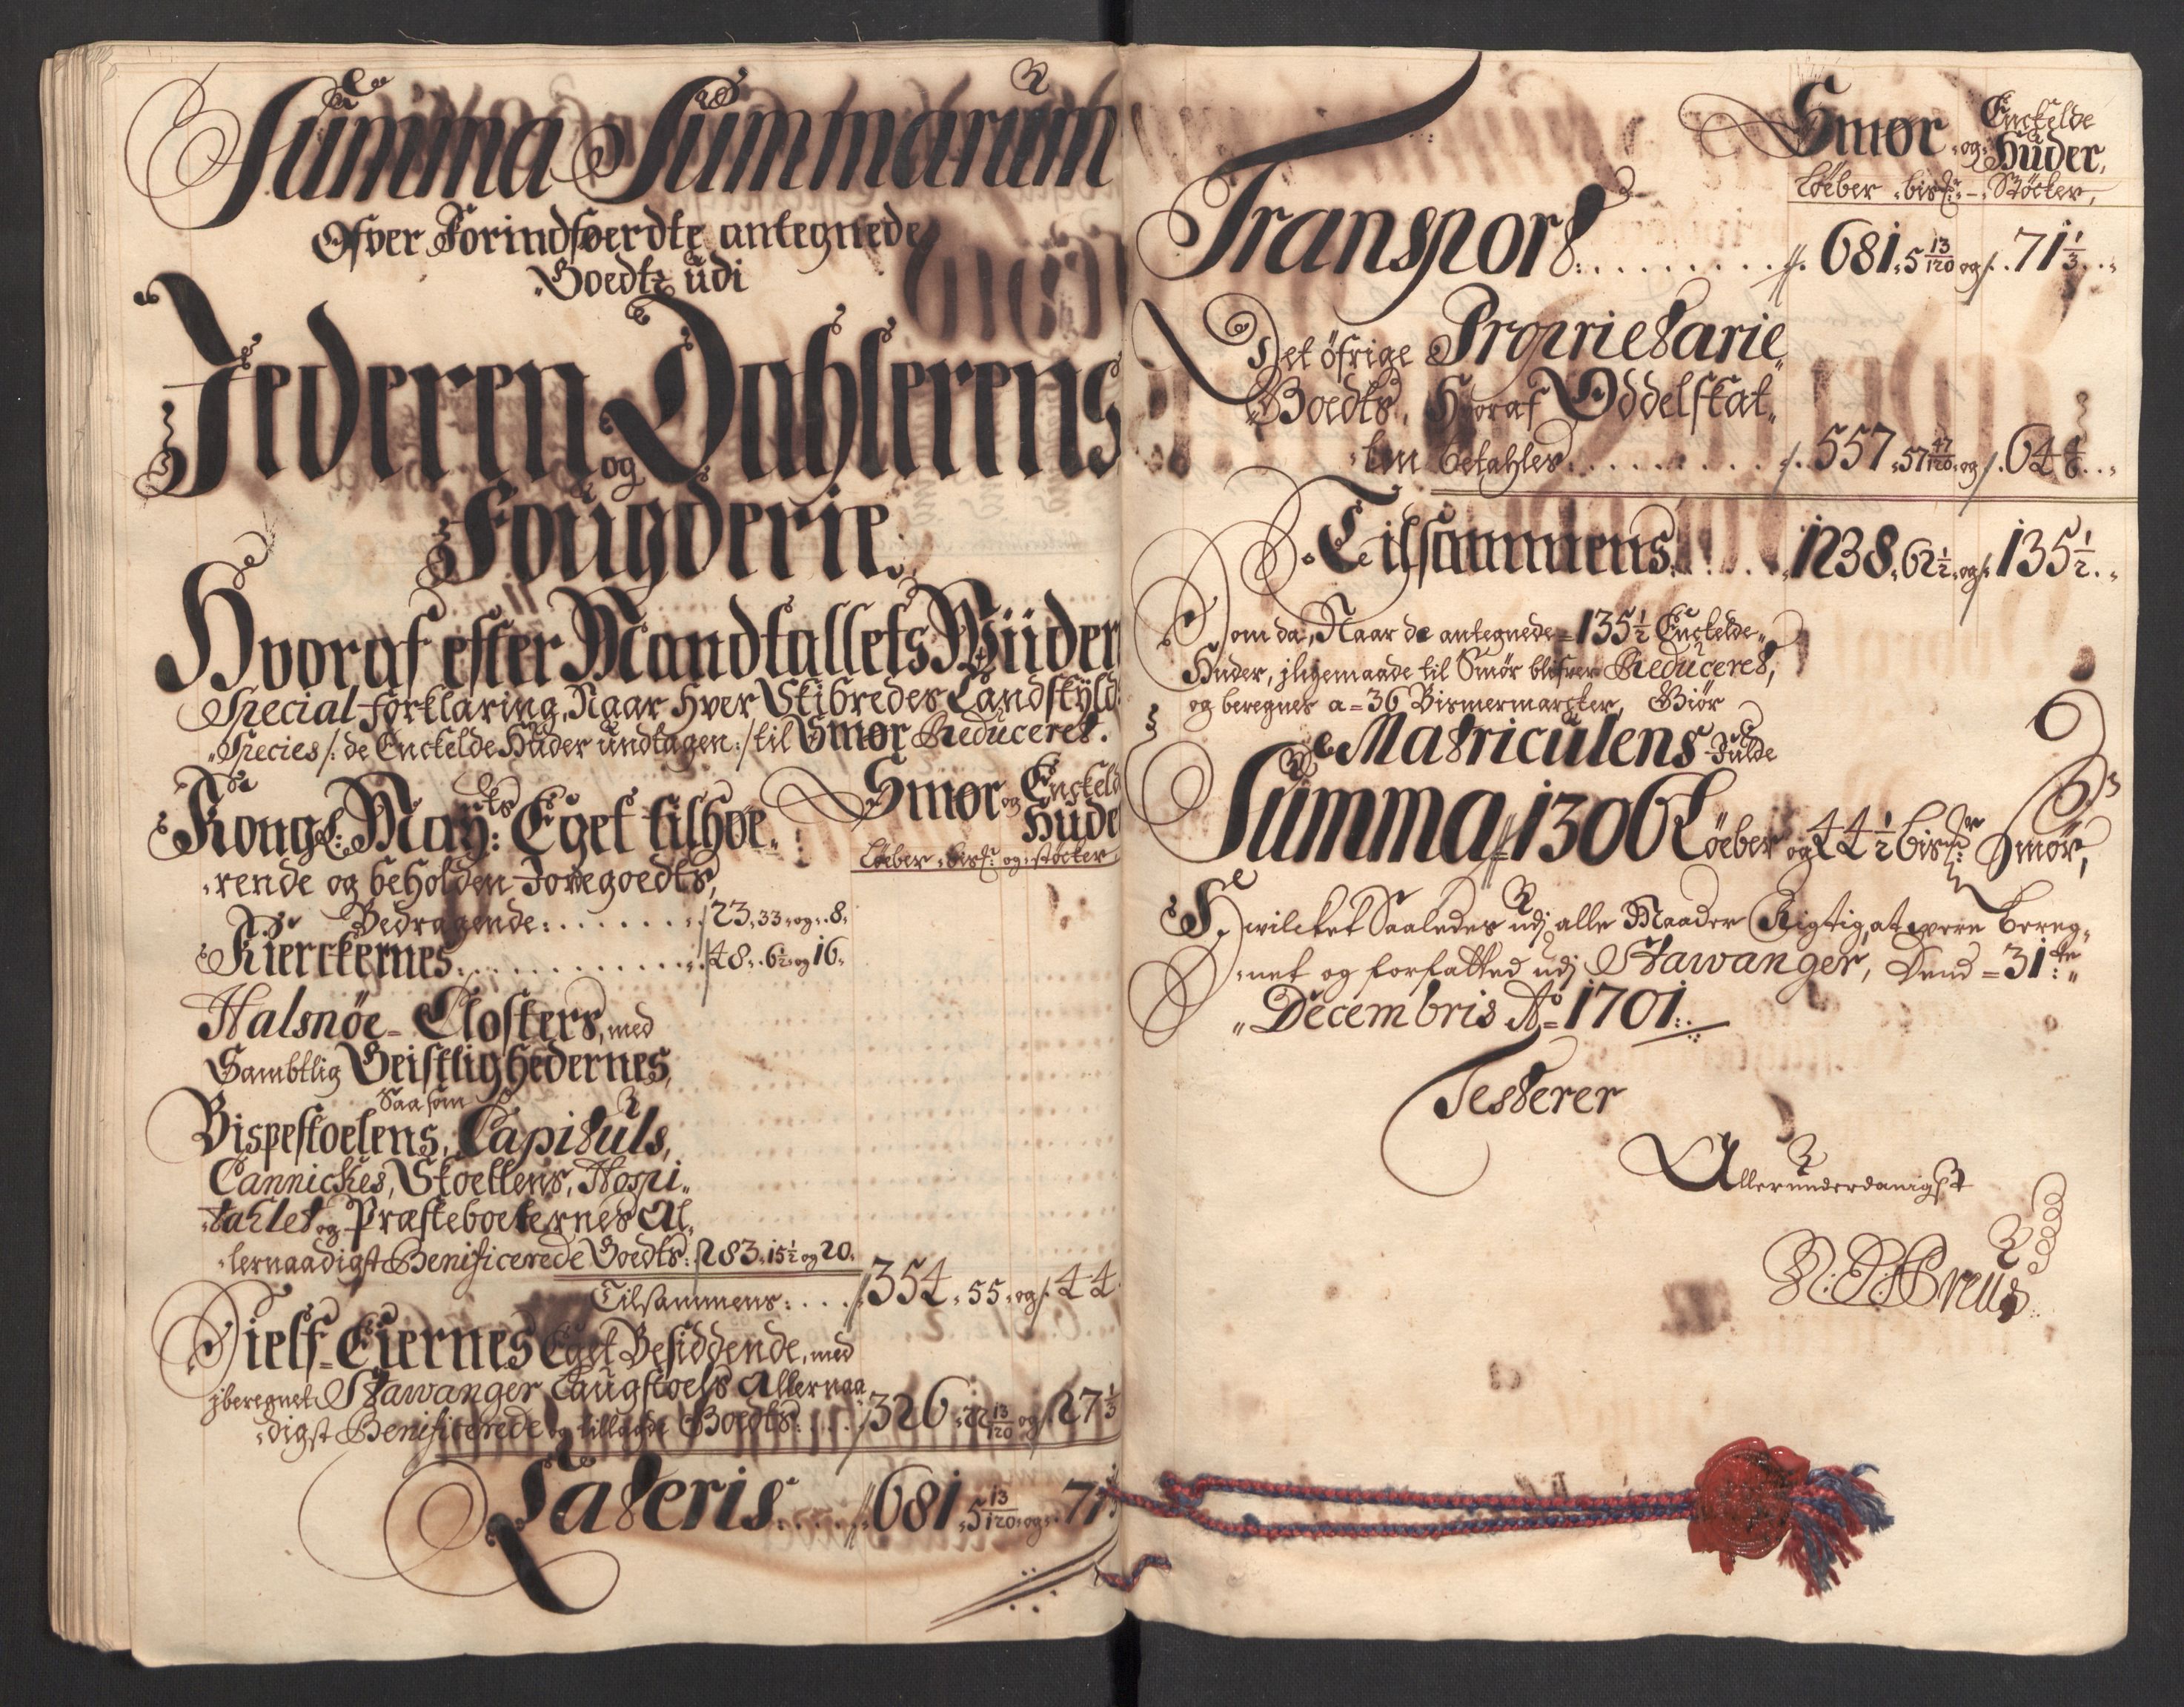 Summa Summarum
Ofver Forindføerdte antegnede
Goedtz udi
Jederen og Dahlerens
Fougderie.
Hvoraf efter Mandtallets Viider
Special forklaring, Naar Hver Skibredes Landskyld
Species /: de Enckelde Huder undtagen :/ til Smør Reduceret.
Smør og Enckelde Huder
Løeber, bisk: og støcker
Kongl: Mayts: Eget tilhøe-
rende og beholden Jordegoedts,
Bedragende: . . . . . . . 23. 33. og 8.
Kierckernes. . . . . . . . . . . 48. 6½ og 16.
Halsnöe-Closters, med
Samblig Geistlighedernes,
Saa som
Bispestoelens, Capituls,
Cannickes, Skoellens, Hospi-
tahlet og Præsteboelernes Al-
lernaadigst Benificerede Goedts: 283. 15½ og 20.
Tilsammens: . . . 354. 55. og 44
Sielf-Eiernes Eget Besiddende, med
jberegnet Stawanger Laugstoels Allernaa-
digst Benificerede og tillagde Goedts: . . . 326. 22 13/120 og 27⅓
Lateris . . . . 681. 5 13/120 og 71⅓
Smør og Enckelde Huder,
Løeber, bisk: - Støcker,
Transport: . . . . . . . . 681. 5 13/120 og 71⅓
Det öfrige Proprietarie
Goedts, Hvoraf Oddelskat-
ten betahles . . . . . . . . 557. 57 47/120 og 64⅙
Tilsammens . . . . 1238. 62½ og 135½
Som da, Naar de antegnede 135½ Enckelde
Huder, jligemaade til Smør blifver Reduceret,
og beregnes a 36 Bismermarcker, Giør
Matriculens fulde
Summa 1306 Løeber og 44½ bisk: Smør,
Hvilcket Saaledes udj alle Maader Rigtig, at være bereg-
net og forfatted udj Stawanger, Dend 31te
Decembris Ao 1701.
Testerer
Allerunderdanigst